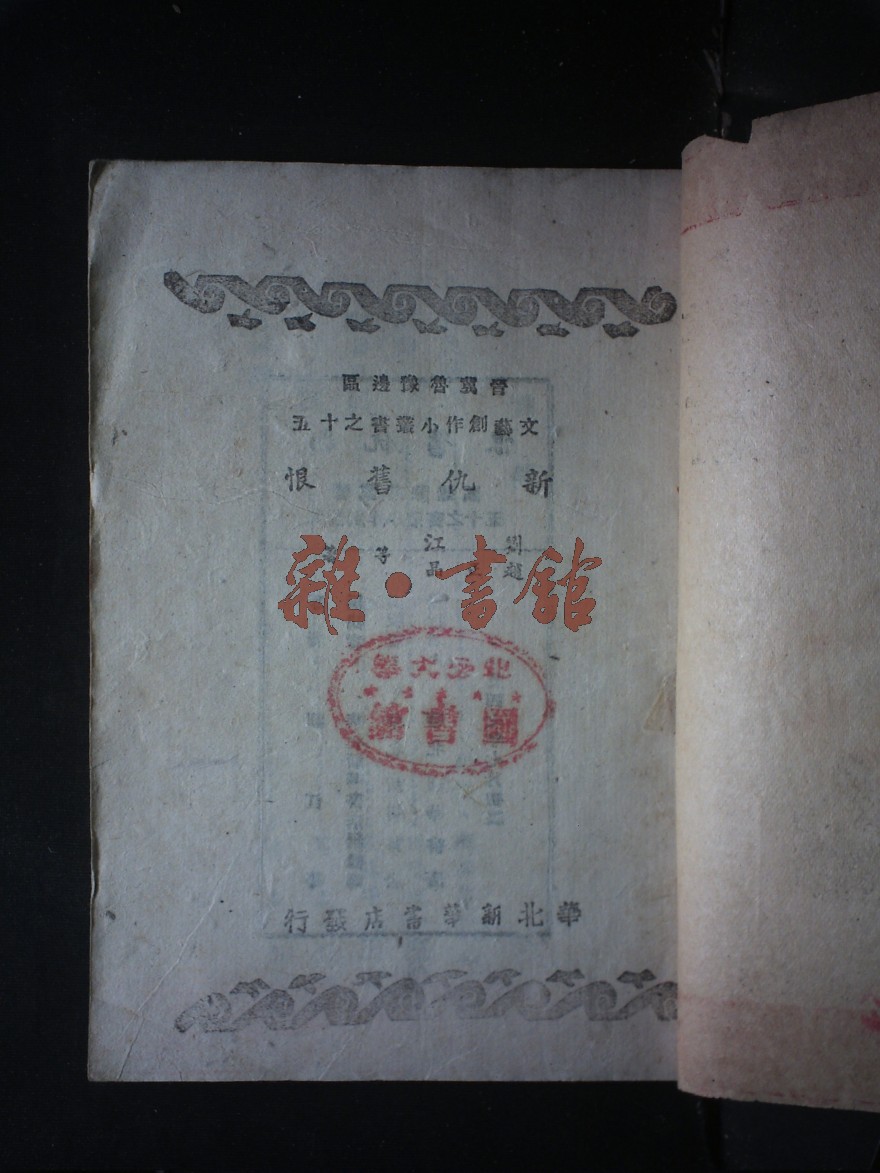 晉冀魯豫邊區
文藝創作小叢書之十五
新仇舊恨
劉江等著
趙晶一
雜·書館
北方大學
圖書館
華北新華書店發行